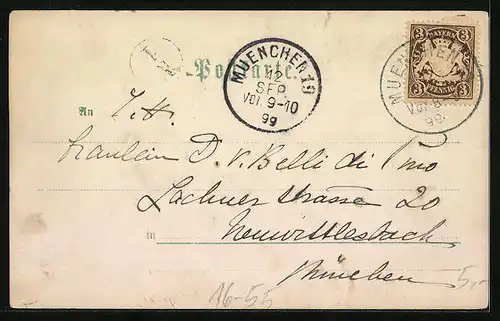 3 BAYERN 3
PFENNIG
Postkarte.
MUENCHEN 19
12
SEP.
Vor. 9-10
99
MUENCHEN
Vor. 8
99.
An
Fräulein D. v. Belli di Pino
Lachner strasse 20
in Neuwittlesbach
München
16-55
5,-